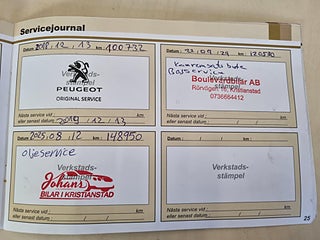 Servicejournal
Datum: 2018, 12, 13 km: 100732
Verkstads-
stämpel
PEUGEOT
ORIGINAL SERVICE
Nästa service vid km
eller senast datum 2019 / 12 / 13
Datum: km:
Kamremsatt byte
Basservice
Verkstads-
Boulevardbilar AB
Röndgen 16, Kristianstad
0736664412
Nästa service vid km
eller senast datum / /
Datum: 2025, 08, 12 km: 148950
oljeservice
Verkstads-
stämpel
Johans
BILAR I KRISTIANSTAD
Nästa service vid km
eller senast datum / /
Datum: / / km:
Verkstads-
stämpel
Nästa service vid km
eller senast datum / /
25